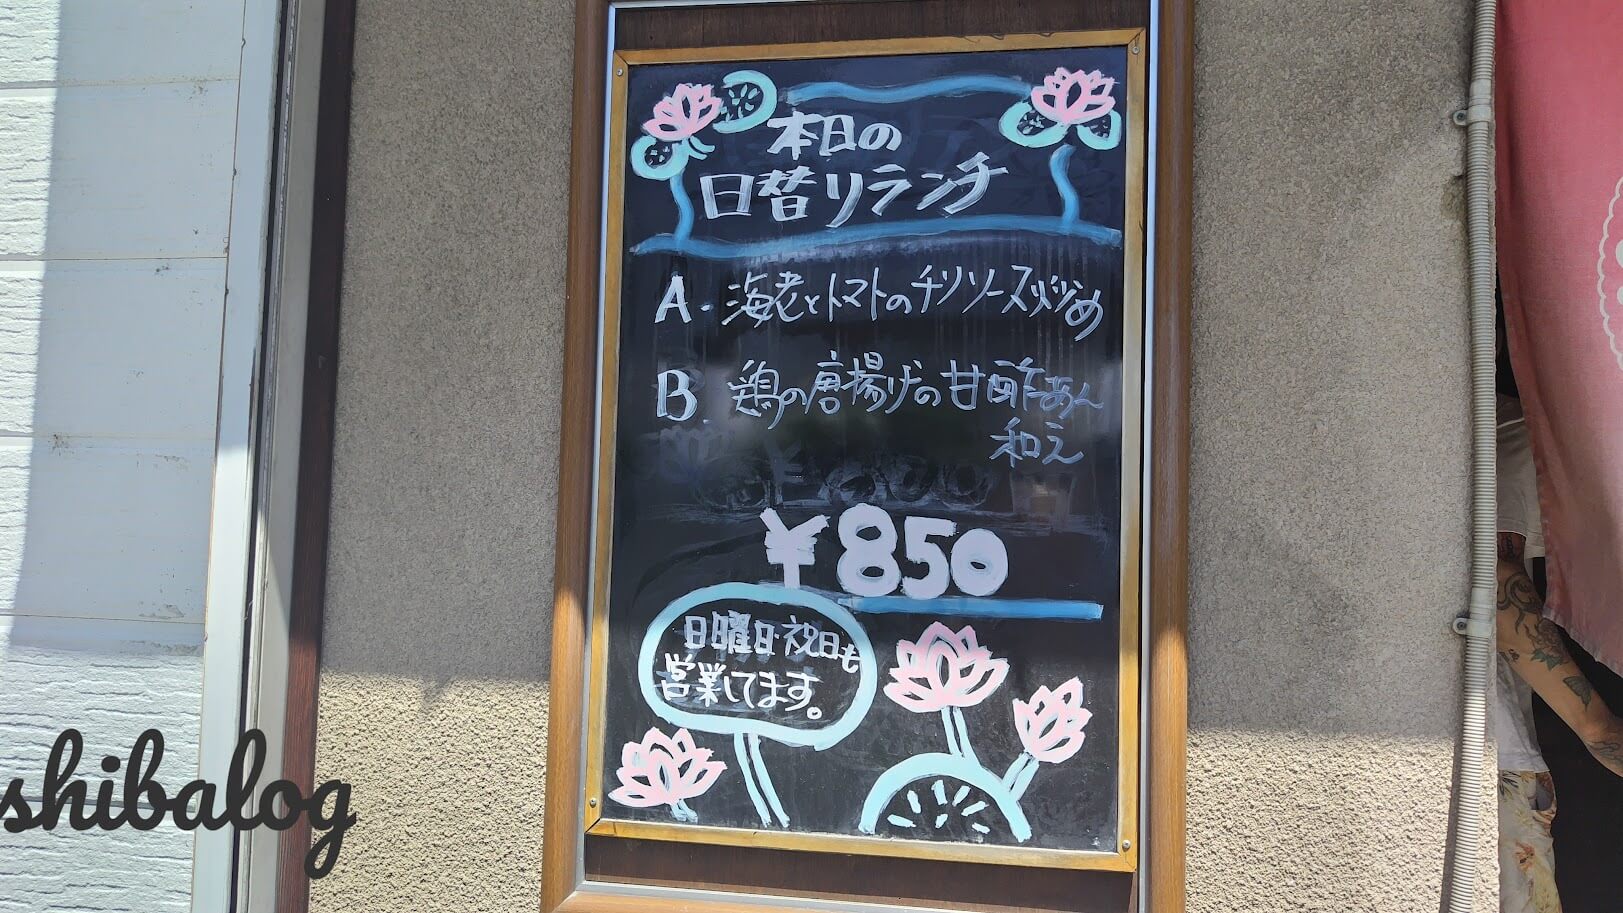 本日の
日替りランチ
A. 海老とトマトのチリソース炒め
B. 鶏の唐揚げの甘酢あん
和え
¥850
日曜日・祝日も
営業してます。
shibalog